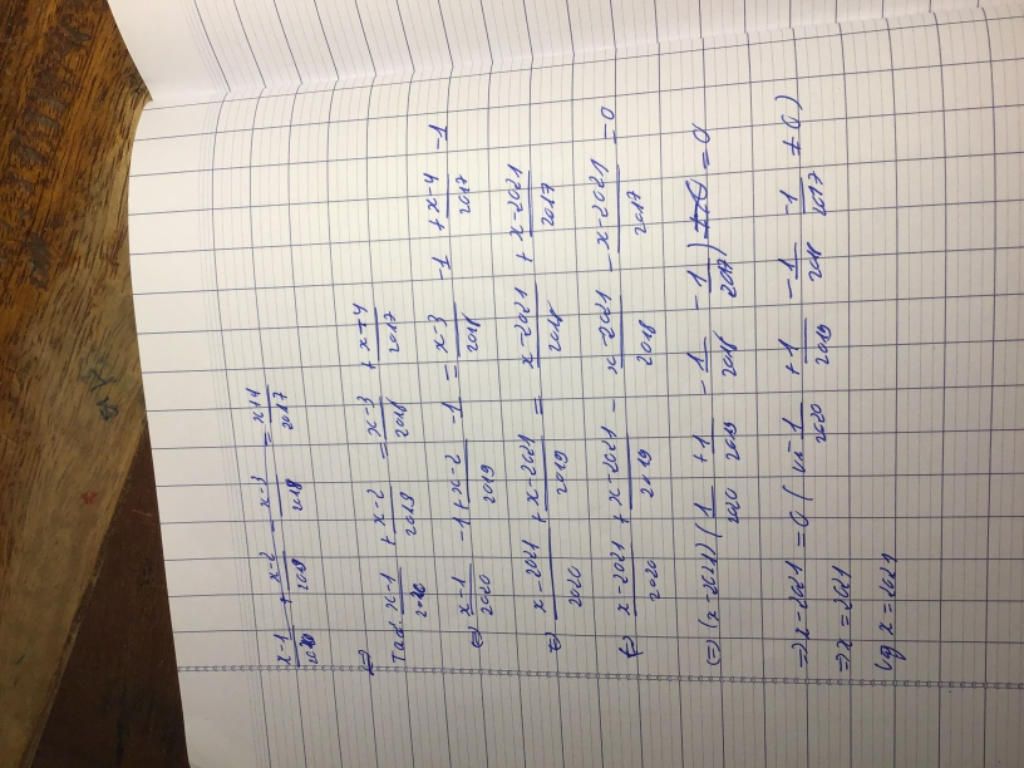 x-1/2020 + x-2/2019 - x-3/2018 = x+4/2017
Ta có: x-1/2020 + x-2/2019 = x-3/2018 + x+4/2017
⇔ x-1/2020 -1 + x-2/2019 -1 = x-3/2018 -1 + x-4/2017 -1
⇔ x-2021/2020 + x-2021/2019 = x-2021/2018 + x-2021/2017
⇔ x-2021/2020 + x-2021/2019 - x-2021/2018 - x-2021/2017 = 0
⇔ (x-2021) (1/2020 + 1/2019 - 1/2018 - 1/2017) = 0
⇒ x-2021 = 0 (vì 1/2020 + 1/2019 - 1/2018 - 1/2017 ≠ 0)
⇒ x = 2021
Vậy x = 2021